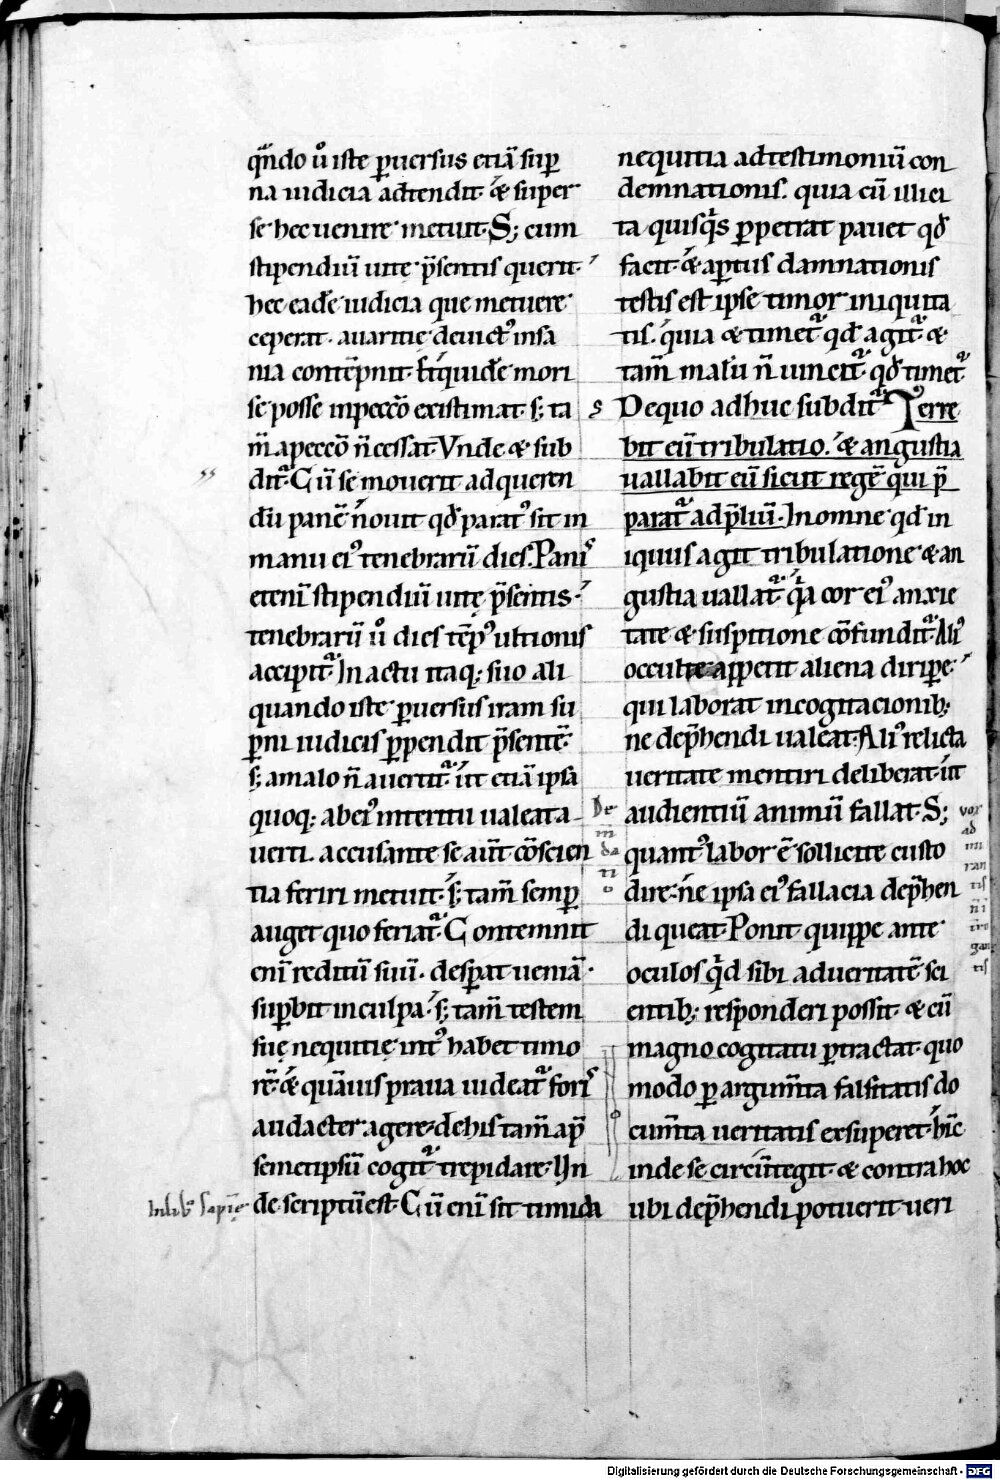 qͣndo u̾ iste ꝑuersus etiā suꝑ
na iudicia adtendit· & super
se hec uenire metuit· S; cum
stipendiū uitę p̄sentis querit·
hec eadē iudicia que metuere
ceperat· auaritie deuict᾽ insa
nia contēpnit· Et iquidē mori
se posse in peccō existimat· s; ta
m̄ a peccō n̄ cessat· Vnde & sub
dit᷑· Cū se mouerit ad queren
dū panē nouit qd̄ parat᾽ sit in
manu ei᾽ tenebrarū dies. Pani᾽
etenī stipendiū uitę p̄sentis·
tenebrarū u̾ dies tēp᾽ ultionis
accipit᷑· In actu itaq; suo ali
quando iste ꝑuersus iram su
ꝑni iudicis ꝑpendit p̄sentē·
s; a malo n̄ auertit᷑· ut etiā ipsa
quoq; ab ei᾽ interitu ualeat a
uerti. accusante se aut̄ cōscien
tia feriri metuit· s; tam̄ semꝑ
auget quo feriat᷑· Contemnit
enī reditū suū· desꝑat ueniā·
suꝑbit in culpa· s; tam̄ testem
suę nequitię int᾽ habet timo
rē· & quāuis praua uideat᷑ fori᾽
audacter agere· de his tam̄ apd̄
semetipsū cogit᷑ trepidare· Hin
In lib᾽ sapię de scriptū est· Cū enī sit timida
nequitia ad testimoniū con
demnationis. quia cū illici
ta quisqͥs ꝑpetrat pauet qd̄
facit· & aꝑtus damnationis
testis est ipse timor iniquita
tis. quia & timet᷑ qd̄ agit᷑· &
tam̄ malū n̄ uincit᷑· qd̄ timet᷑
De quo adhuc subdit᷑· Terre
bit eū tribulatio. & angustia
uallabit eū sicut regē qui p̄
parat᷑ ad p̄liū· In omne qd̄ in
iquus agit tribulatione & an
gustia uallat᷑· qͥa cor ei᾽ anxie
tate & suspitione cōfundit᷑· Ali᾽
occulte appetit aliena diriꝑe·
qui laborat in cogitacionib;
ne dep̄hendi ualeat· Ali᾽ relicta
ueritate mentiri deliberat· ut
audientiū animū fallat· S;
quant᾽ labor ē sollicite custo
dire· ne ipsa ei᾽ fallacia dep̄hen
di queat· Ponit quippe ante
oculos qͥd sibi a ueritatē sci
entib; responderi possit· & cū
magno cogitatu ꝑtractat quo
modo ꝑ argum̄ta falsitatis do
cum̄ta ueritatis exsuperet· hīc
inde se circūtegit· & contra hoc
ubi dep̄hendi potuerit ueri
Digitalisierung gefördert durch die Deutsche Forschungsgemeinschaft - DFG